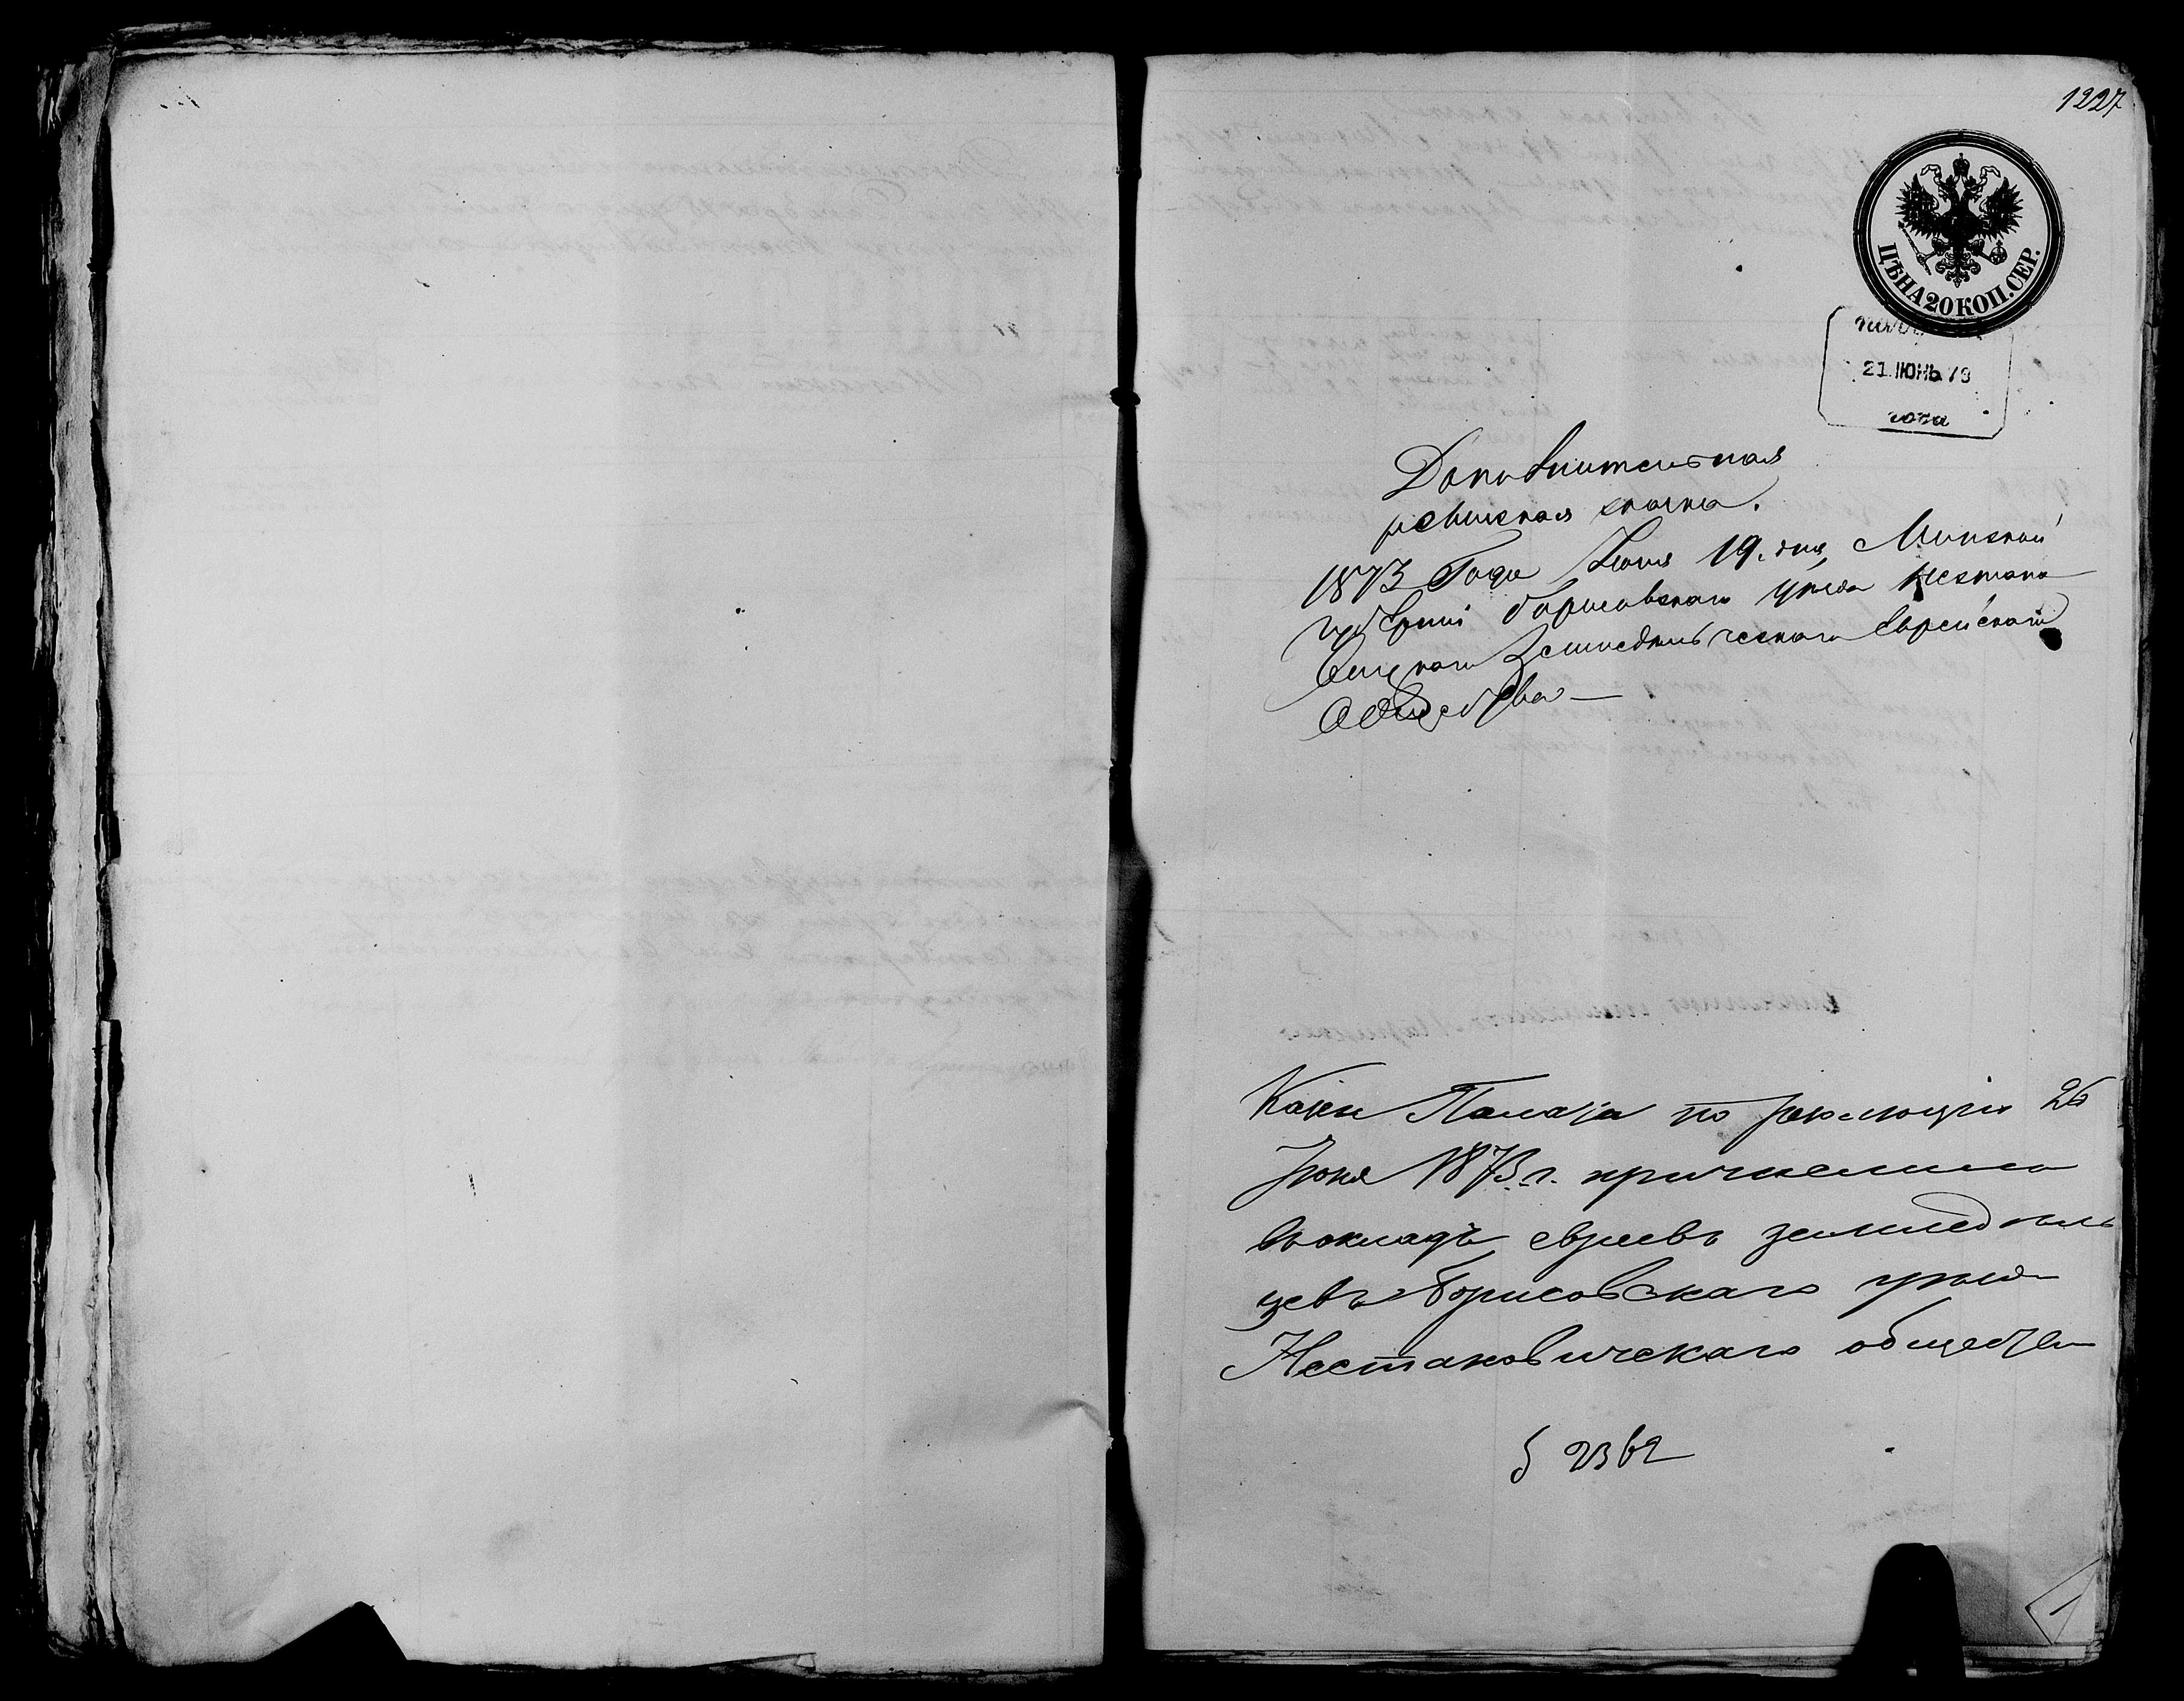 1227
ЦѢНА 20 КОП. СЕР.
21 ІЮНЬ 73
года
Дополнительная
ревизская сказка.
1873 Года Іюня 19. дня Минской
губерніи борисовскаго уѣзда Нестано
вичскаго Земледѣльческаго Еврейскаго
Общества —
Казен Палата по резолюціи 26
Іюня 1873 г. причислила
въ окладъ евреевъ земледѣль
цевъ Борисовскаго уѣзда
Нестановичскаго общества
§ 2362
1